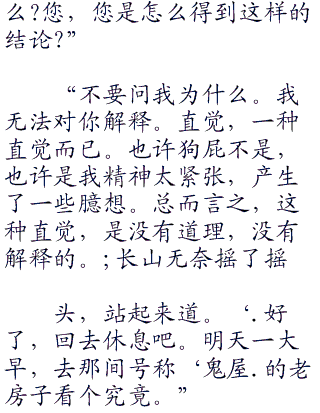 么?您，您是怎么得到这样的
结论?”
“不要问我为什么。我
无法对你解释。直觉，一种
直觉而已。也许狗屁不是，
也许是我精神太紧张，产生
了一些臆想。总而言之，这
种直觉，是没有道理，没有
解释的。;长山无奈摇了摇
头，站起来道。‘.好
了，回去休息吧。明天一大
早，去那间号称‘鬼屋.的老
房子看个究竟。”